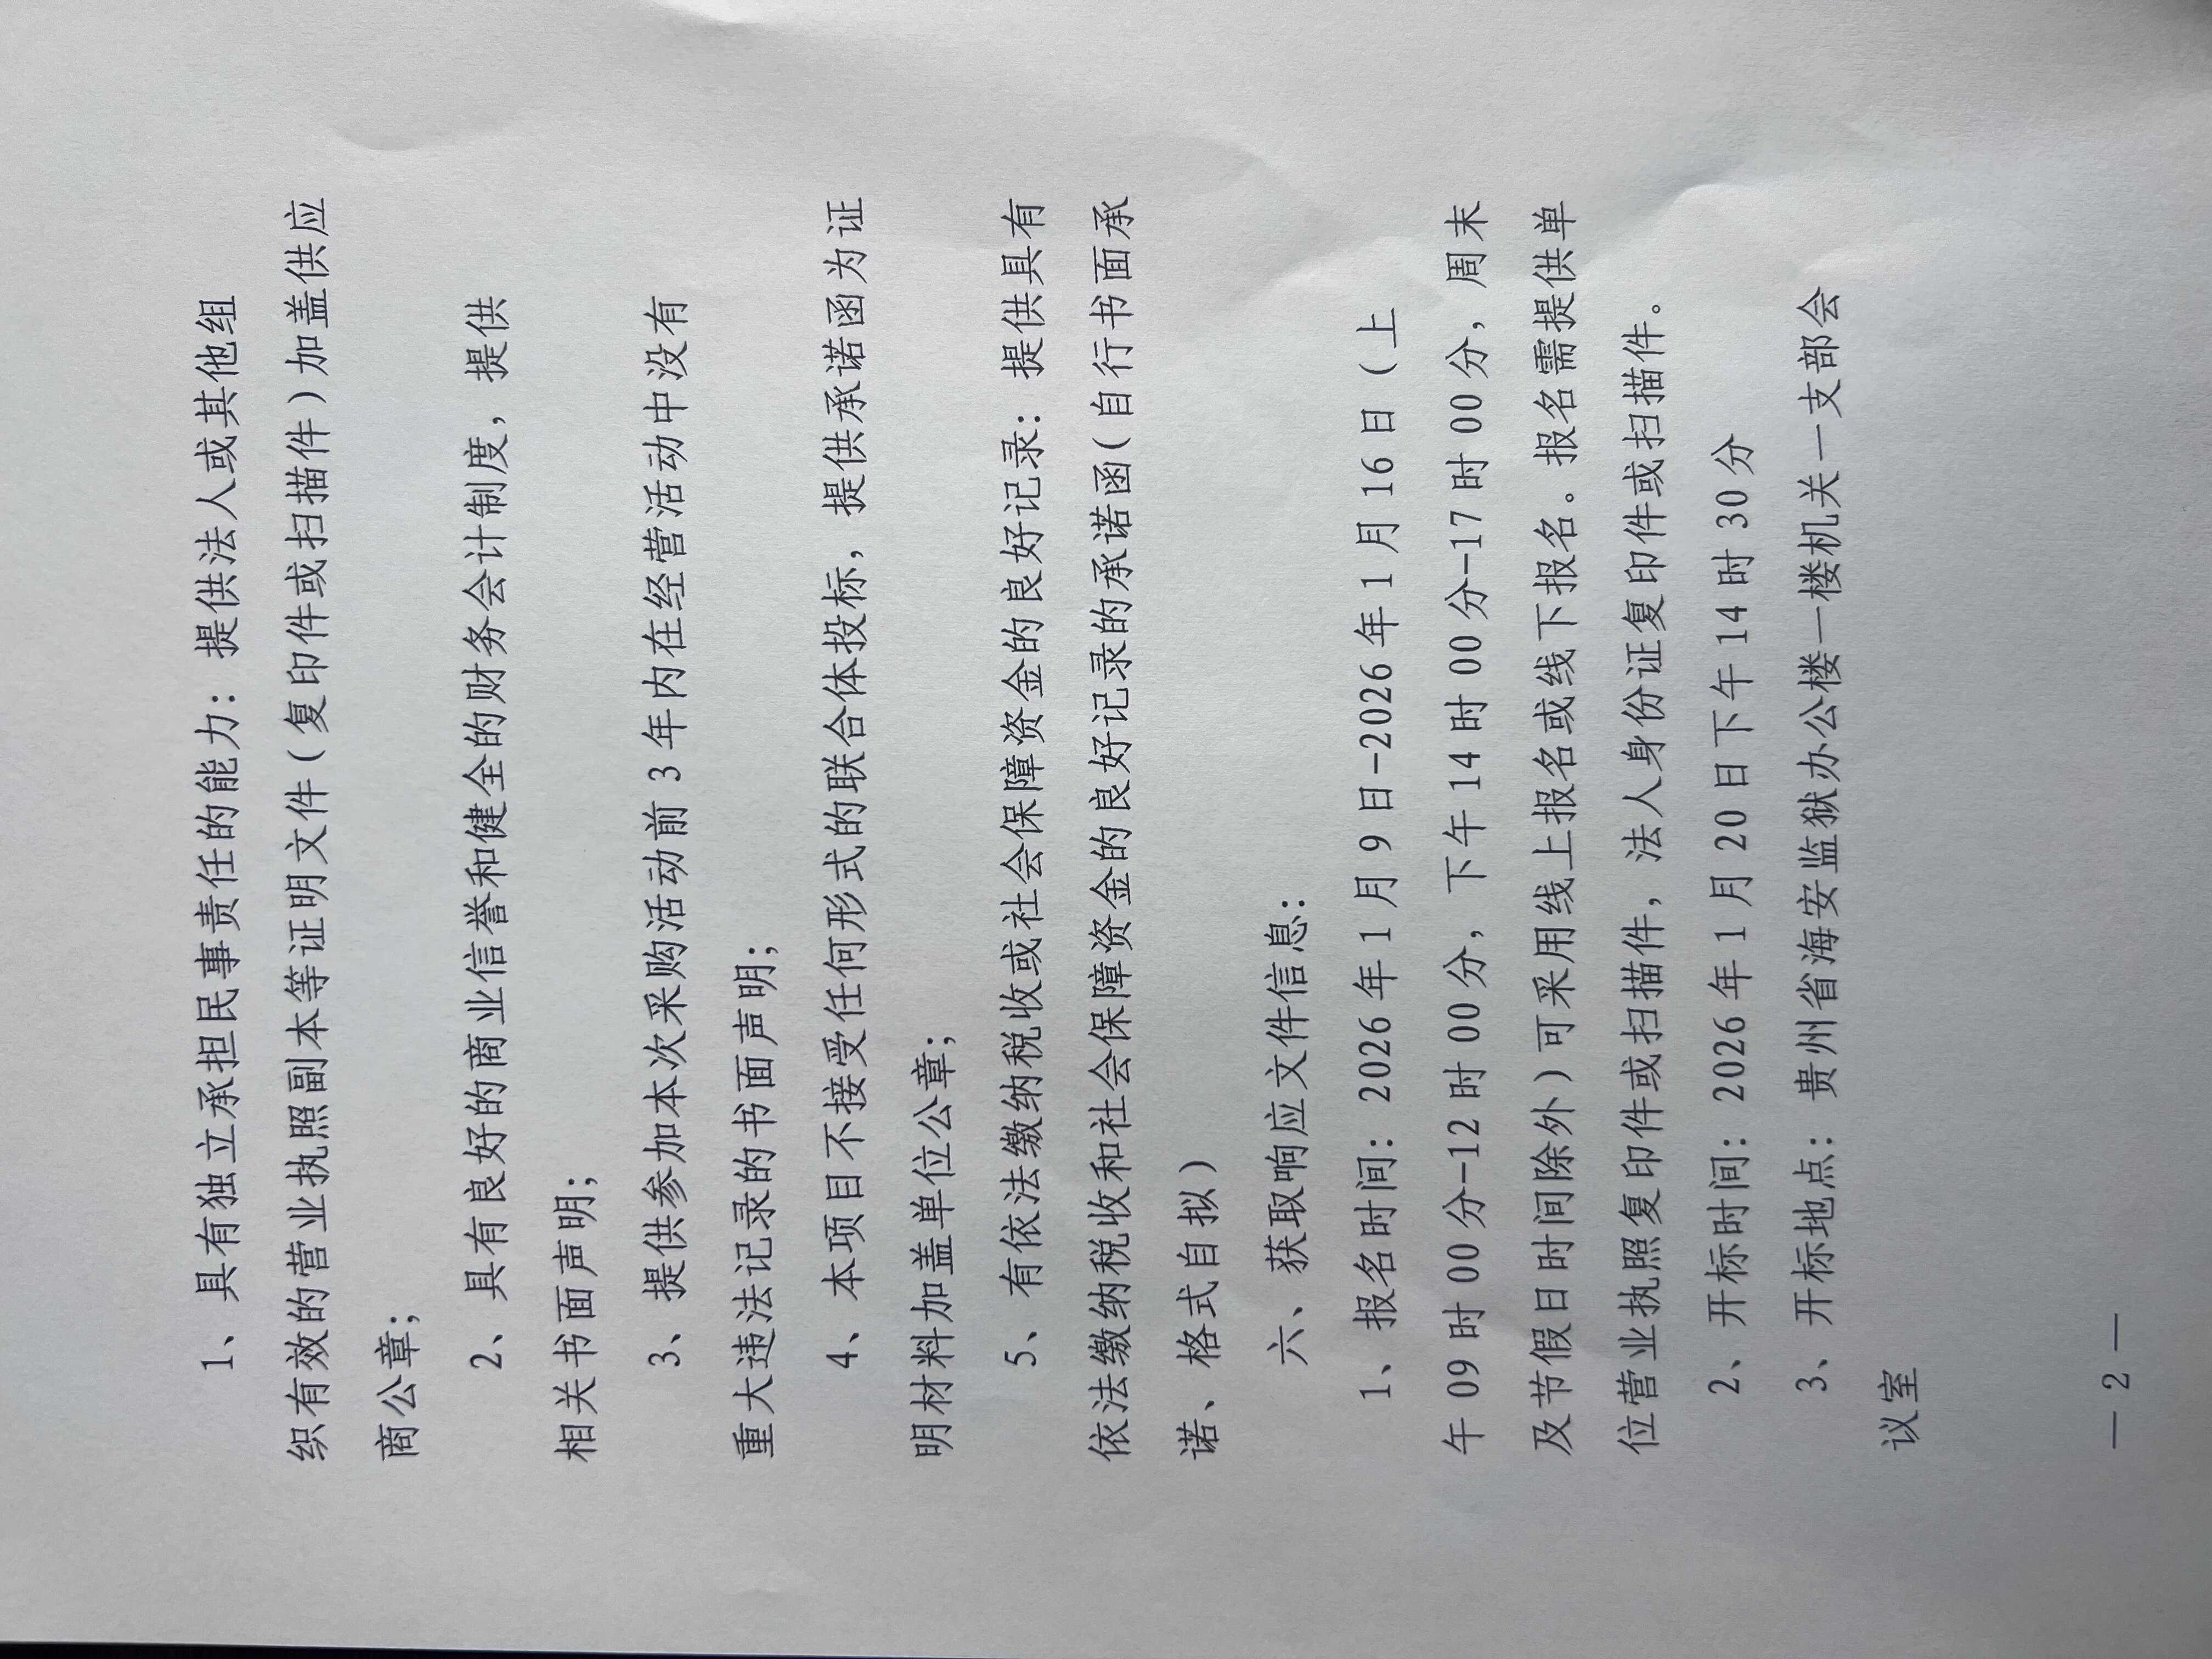 1、具有独立承担民事责任的能力：提供法人或其他组
织有效的营业执照副本等证明文件（复印件或扫描件）加盖供应
商公章；
2、具有良好的商业信誉和健全的财务会计制度，提供
相关书面声明；
3、提供参加本次采购活动前 3 年内在经营活动中没有
重大违法记录的书面声明；
4、本项目不接受任何形式的联合体投标，提供承诺函为证
明材料加盖单位公章；
5、有依法缴纳税收或社会保障资金的良好记录：提供具有
依法缴纳税收和社会保障资金的良好记录的承诺函（自行书面承
诺、格式自拟）
六、获取响应文件信息：
1、报名时间：2026 年 1 月 9 日-2026 年 1 月 16 日（上
午 09 时 00 分-12 时 00 分，下午 14 时 00 分-17 时 00 分，周末
及节假日时间除外）可采用线上报名或线下报名。报名需提供单
位营业执照复印件或扫描件，法人身份证复印件或扫描件。
2、开标时间：2026 年 1 月 20 日下午 14 时 30 分
3、开标地点：贵州省海安监狱办公楼一楼机关一支部会
议室
— 2 —